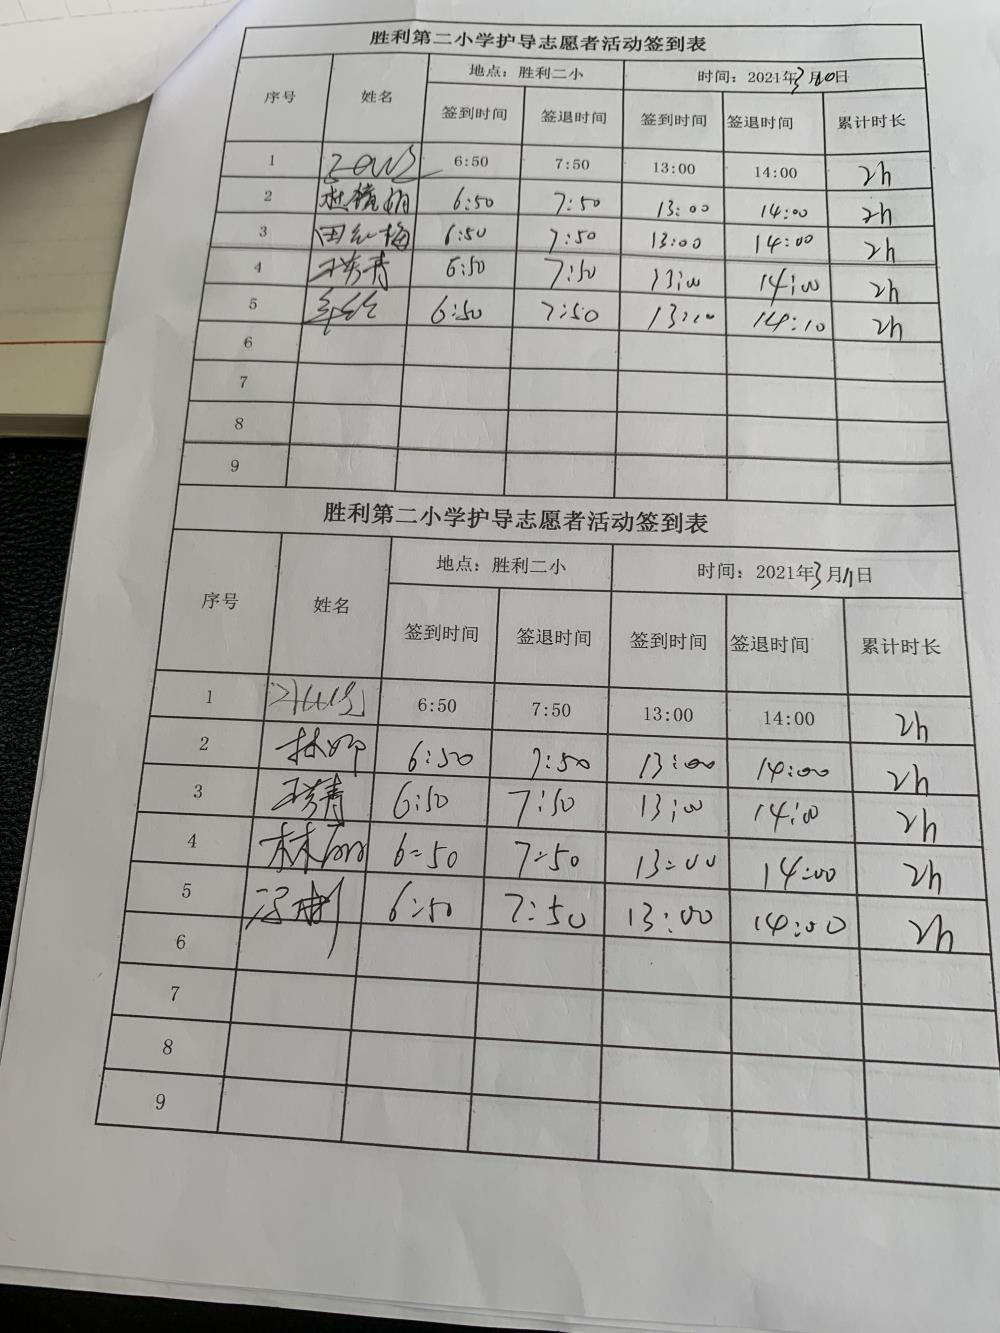 胜利第二小学护导志愿者活动签到表
地点：胜利二小 时间：2021年3月10日
序号 姓名 签到时间 签退时间 签到时间 签退时间 累计时长
1 6:50 7:50 13:00 14:00 2h
2 6:50 7:50 13:00 14:00 2h
3 田红梅 6:50 7:50 13:00 14:00 2h
4 王秀青 6:50 7:50 13:00 14:00 2h
5 6:50 7:50 13:10 14:10 2h
6
7
8
9
胜利第二小学护导志愿者活动签到表
地点：胜利二小 时间：2021年3月11日
序号 姓名 签到时间 签退时间 签到时间 签退时间 累计时长
1 6:50 7:50 13:00 14:00 2h
2 6:50 7:50 13:00 14:00 2h
3 王秀青 6:50 7:50 13:00 14:00 2h
4 林丽 6:50 7:50 13:00 14:00 2h
5 6:50 7:50 13:00 14:00 2h
6
7
8
9